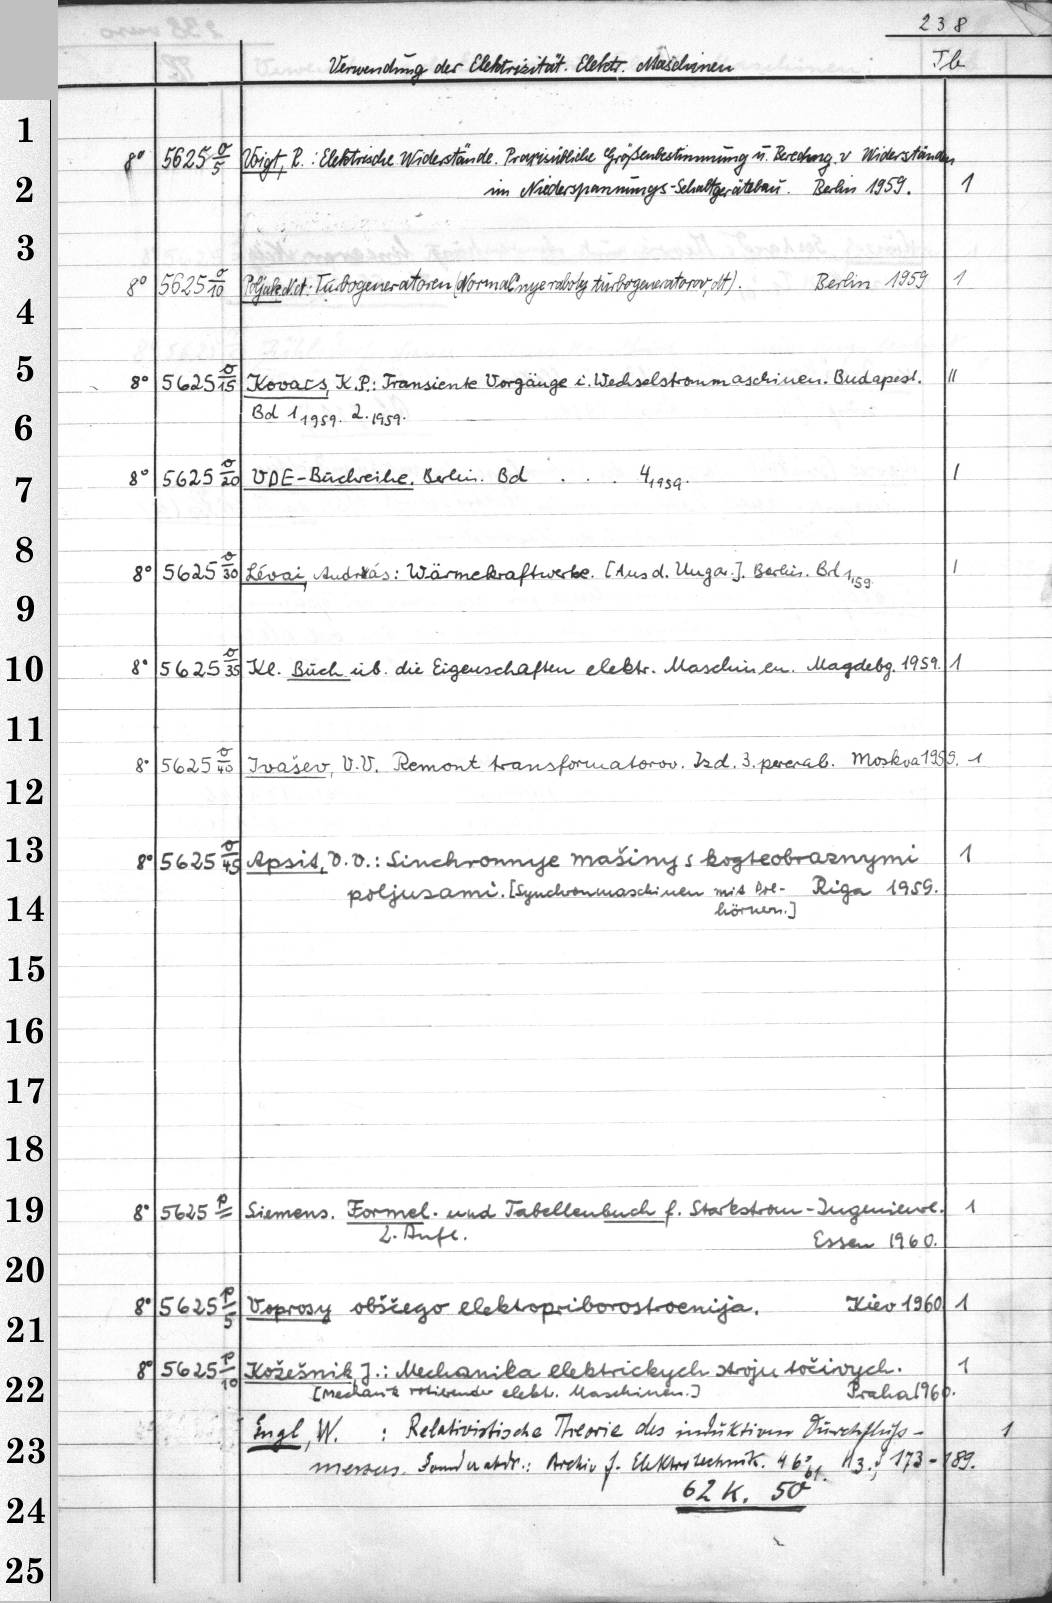 238
Verwendung der Elektrizität. Elektr. Maschinen Tb
1
8° 5625 σ/5 Voigt, R.: Elektrische Widerstände. Praxisübliche Größenbestimmung u. Berechng. v Widerständen
2 im Niederspannungs-Schaltgerätebau. Berlin 1959. 1
3
8° 5625 σ/10 Poljak, N.A.: Turbogeneratoren (Normal'nye raboty turbogeneratorov, dt). Berlin 1959 1
4
5
8° 5625 σ/15 Kovacs, K.P.: Transiente Vorgänge i. Wechselstrommaschinen. Budapest. II
6 Bd 1 1959. 2. 1959.
7 8° 5625 σ/20 VDE-Buchreihe. Berlin. Bd . . . 4, 1959. 1
8
8° 5625 σ/30 Lévai, András: Wärmekraftwerke. [Aus d. Ungar.]. Berlin. Bd 1, 59 1
9
10 8° 5625 σ/35 Kl. Buch üb. die Eigenschaften elektr. Maschinen. Magdebg. 1959. 1
11
8° 5625 σ/40 Ivašev, V.V. Remont transformatorov. Izd. 3. pererab. Moskva 1959. 1
12
13 8° 5625 σ/45 Apsit, V.V.: Sinchronnye mašiny s kogteobraznymi 1
poljusami. [Synchronmaschinen mit Pol- Riga 1959.
14 hörnern.]
15
16
17
18
19 8° 5625 p Siemens. Formel- und Tabellenbuch f. Starkstrom-Ingenieure. 1
2. Aufl. Essen 1960.
20
21 8° 5625 p/5 Voprosy obščego elektopriborostroenija. Kiev 1960 1
8° 5625 p/10 Kožešnik, J.: Mechanika elektrickych stroju točivych. 1
22 [Mechanik rotierender elekt. Maschinen.] Praha 1960.
Engl, W. : Relativistische Theorie des induktiven Durchfluß- 1
23 messers. Sonderabdr.: Archiv f. Elektrotechnik. 46, 61. H3., S 173-189.
24 62 K. 50
25